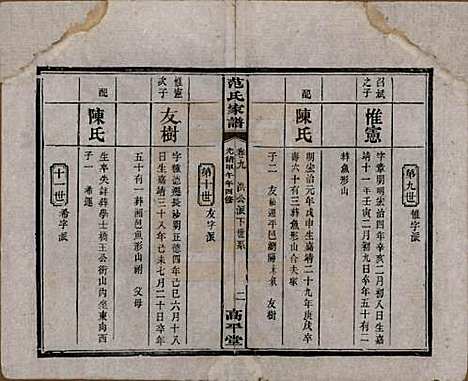 第九世
惟字派
召斌
之子
惟憲
字章期明宏治四年辛亥二月初八日生嘉
靖二十一年壬寅二月初九日卒年五十有二
葬魚形山
配
陳氏
明宏治元年戊申生嘉靖二十九年庚戌卒
壽六十有三葬魚形山合夫冢
子二
友樹
范氏家譜
卷九
洪公派下世系
光緒甲午年四修
二
高平堂
第十世
友字派
惟憲
次子
友樹
字種德遷長沙明正德四年己巳六月十八
日生嘉靖三十八年己未七月二十日卒年
五十有一葬湘邑魚形山祔父母
配
陳氏
生卒失詳葬學士橋王公衝山內坐東向西
子一
希運
十一世
希字派